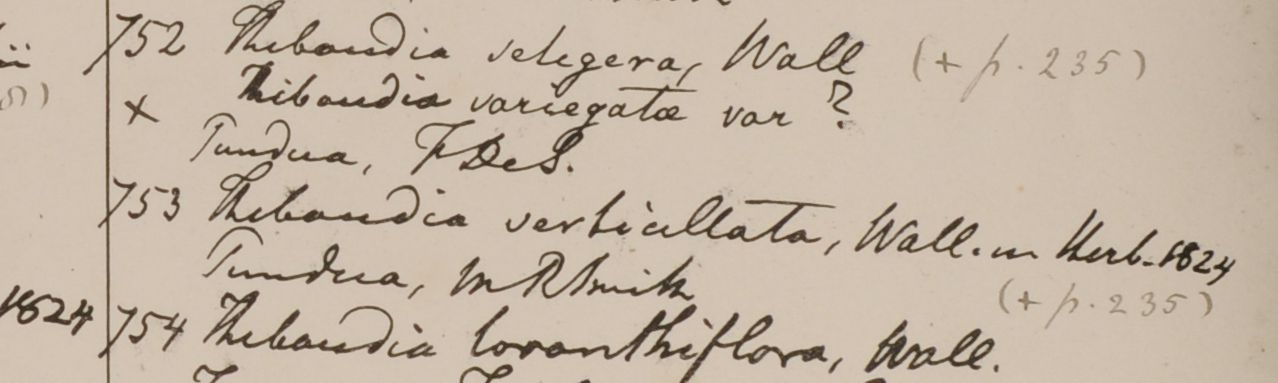 752 Thibaudia setigera, Wall (+ p. 235)
x Thibaudia variegata var ?
Tundua, FDeS.
753 Thibaudia verticillata, Wall. in Herb. 1824
Tundua, M R Smith (+ p. 235)
1824 754 Thibaudia loranthiflora, Wall.